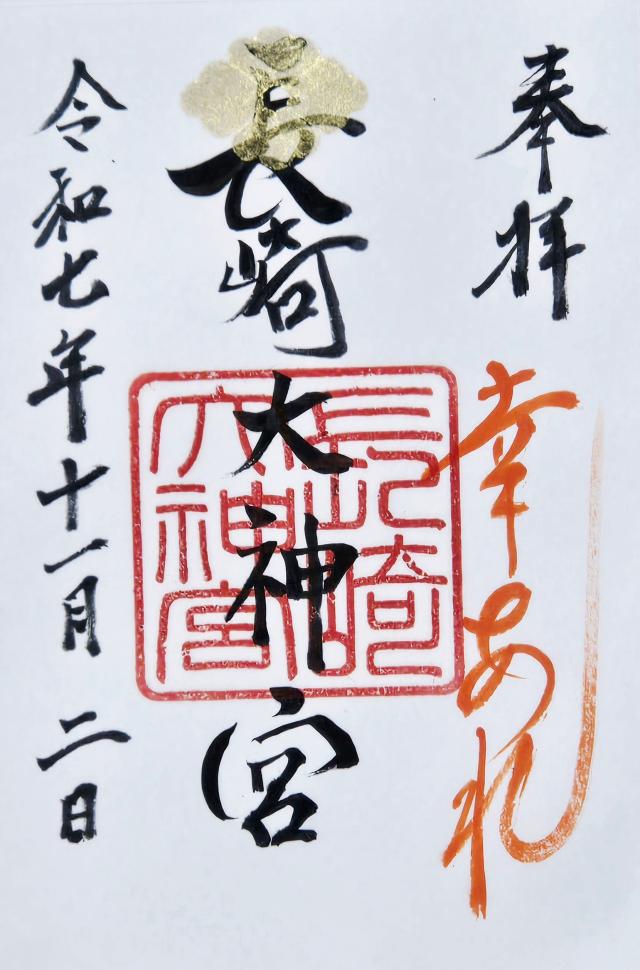 奉拝
幸あれ
長崎大神宮
長崎大神宮
令和七年十一月二日